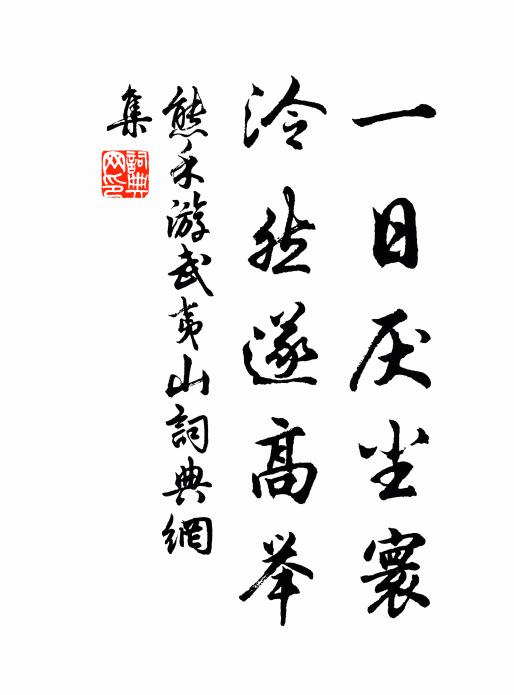 一日厌尘寰
泠然遂高举
熊禾游武夷山詞典網
集
詞典
网印